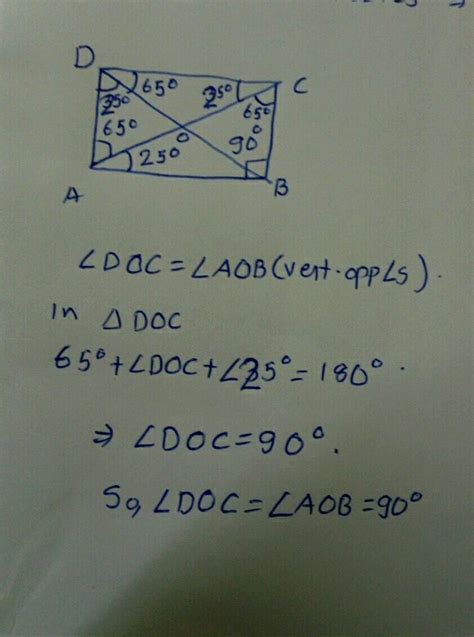 D
65° 25° C
25° 65°
65° O 90°
25°
A B
∠DOC = ∠AOB (vert. opp ∠s).
In △DOC
65° + ∠DOC + ∠25° = 180°.
⇒ ∠DOC = 90°.
So, ∠DOC = ∠AOB = 90°